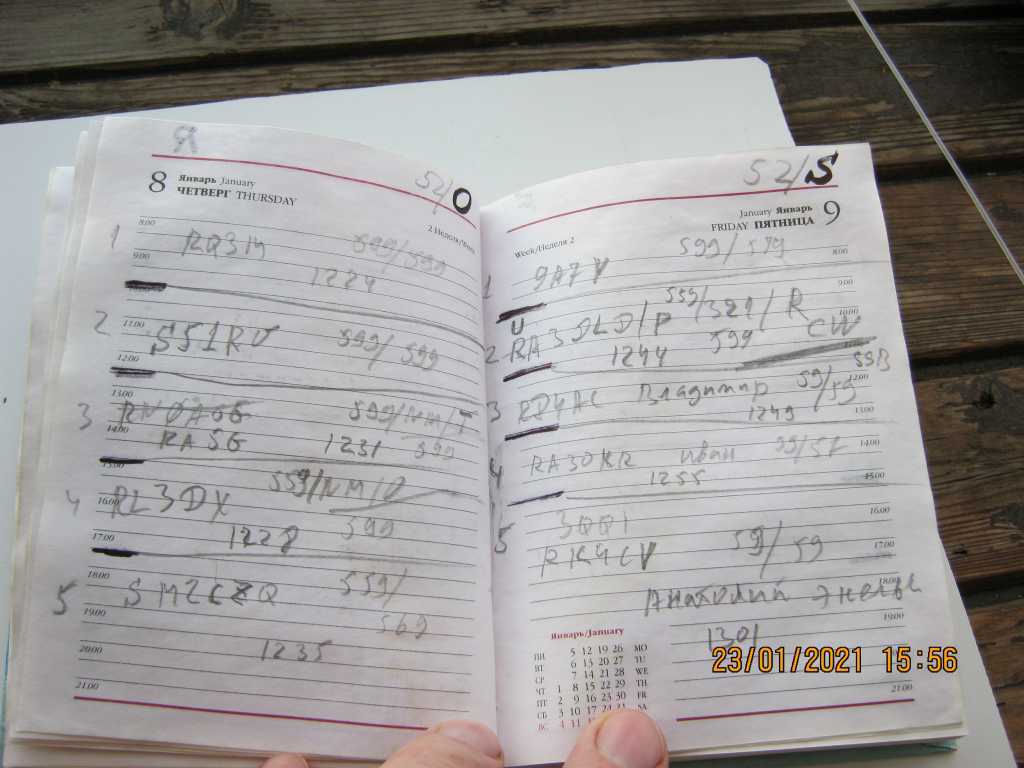 Я
52/0
8 Январь January
ЧЕТВЕРГ THURSDAY
2 Неделя/Week
8.00
1 RQ3M 599/599
9.00
1224
11.00
2 S51RU 599/599
12.00
13.00
3 599/MM/T
14.00
RA5G 1231 599
15.00
559/NM/D
16.00
4 RL3DX 599
17.00
1228
18.00
5 SM2CZQ 559/
19.00
569
20.00
1235
21.00
52/S
January Январь 9
FRIDAY ПЯТНИЦА
Week/Неделя 2
8.00
1 9A7V 599/599
9.00
U 559/321/R
10.00
2 RA3DLD/P 599 CW
1244
SSB
12.00
3 RD4AC Владимир 59/59
13.00
1249
14.00
4 RA3OKR иван 59/57
15.00
1255
16.00
5 3QQ1
17.00
RK4CV 59/59
18.00
Анатолий
19.00
1301
21.00
Январь/January
ПН 5 12 19 26 MO
ВТ 6 13 20 27 TU
СР 7 14 21 28 WE
ЧТ 1 8 15 22 29 TH
ПТ 2 9 16 23 30 FR
СБ 3 10 17 24 31 SA
ВС 4 11
23/01/2021 15:56